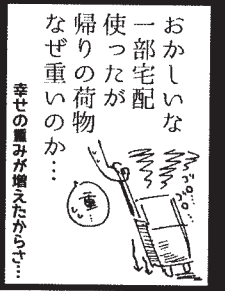 おかしいな
一部宅配
使ったが
帰りの荷物
なぜ重いのか…
ゴロ…
ゴロ…
重…
幸せの重みが増えたからさ…